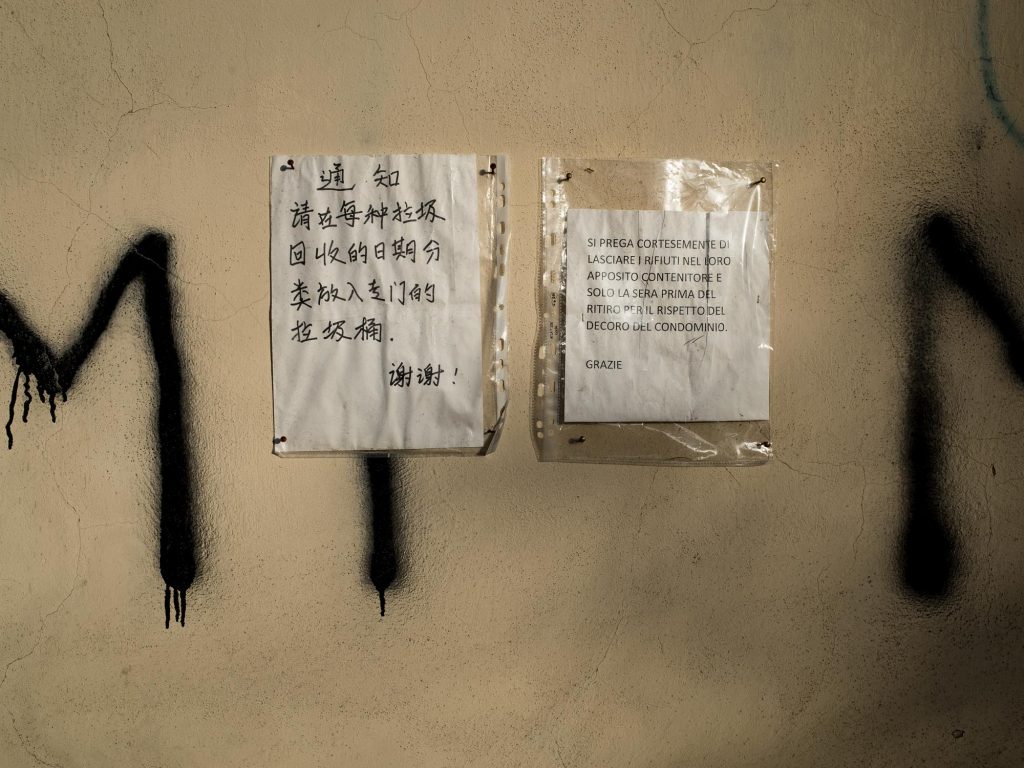 通知
请在每种垃圾
回收的日期分
类放入专门的
垃圾桶.
谢谢!
SI PREGA CORTESEMENTE DI
LASCIARE I RIFIUTI NEL LORO
APPOSITO CONTENITORE E
SOLO LA SERA PRIMA DEL
RITIRO PER IL RISPETTO DEL
DECORO DEL CONDOMINIO.
GRAZIE